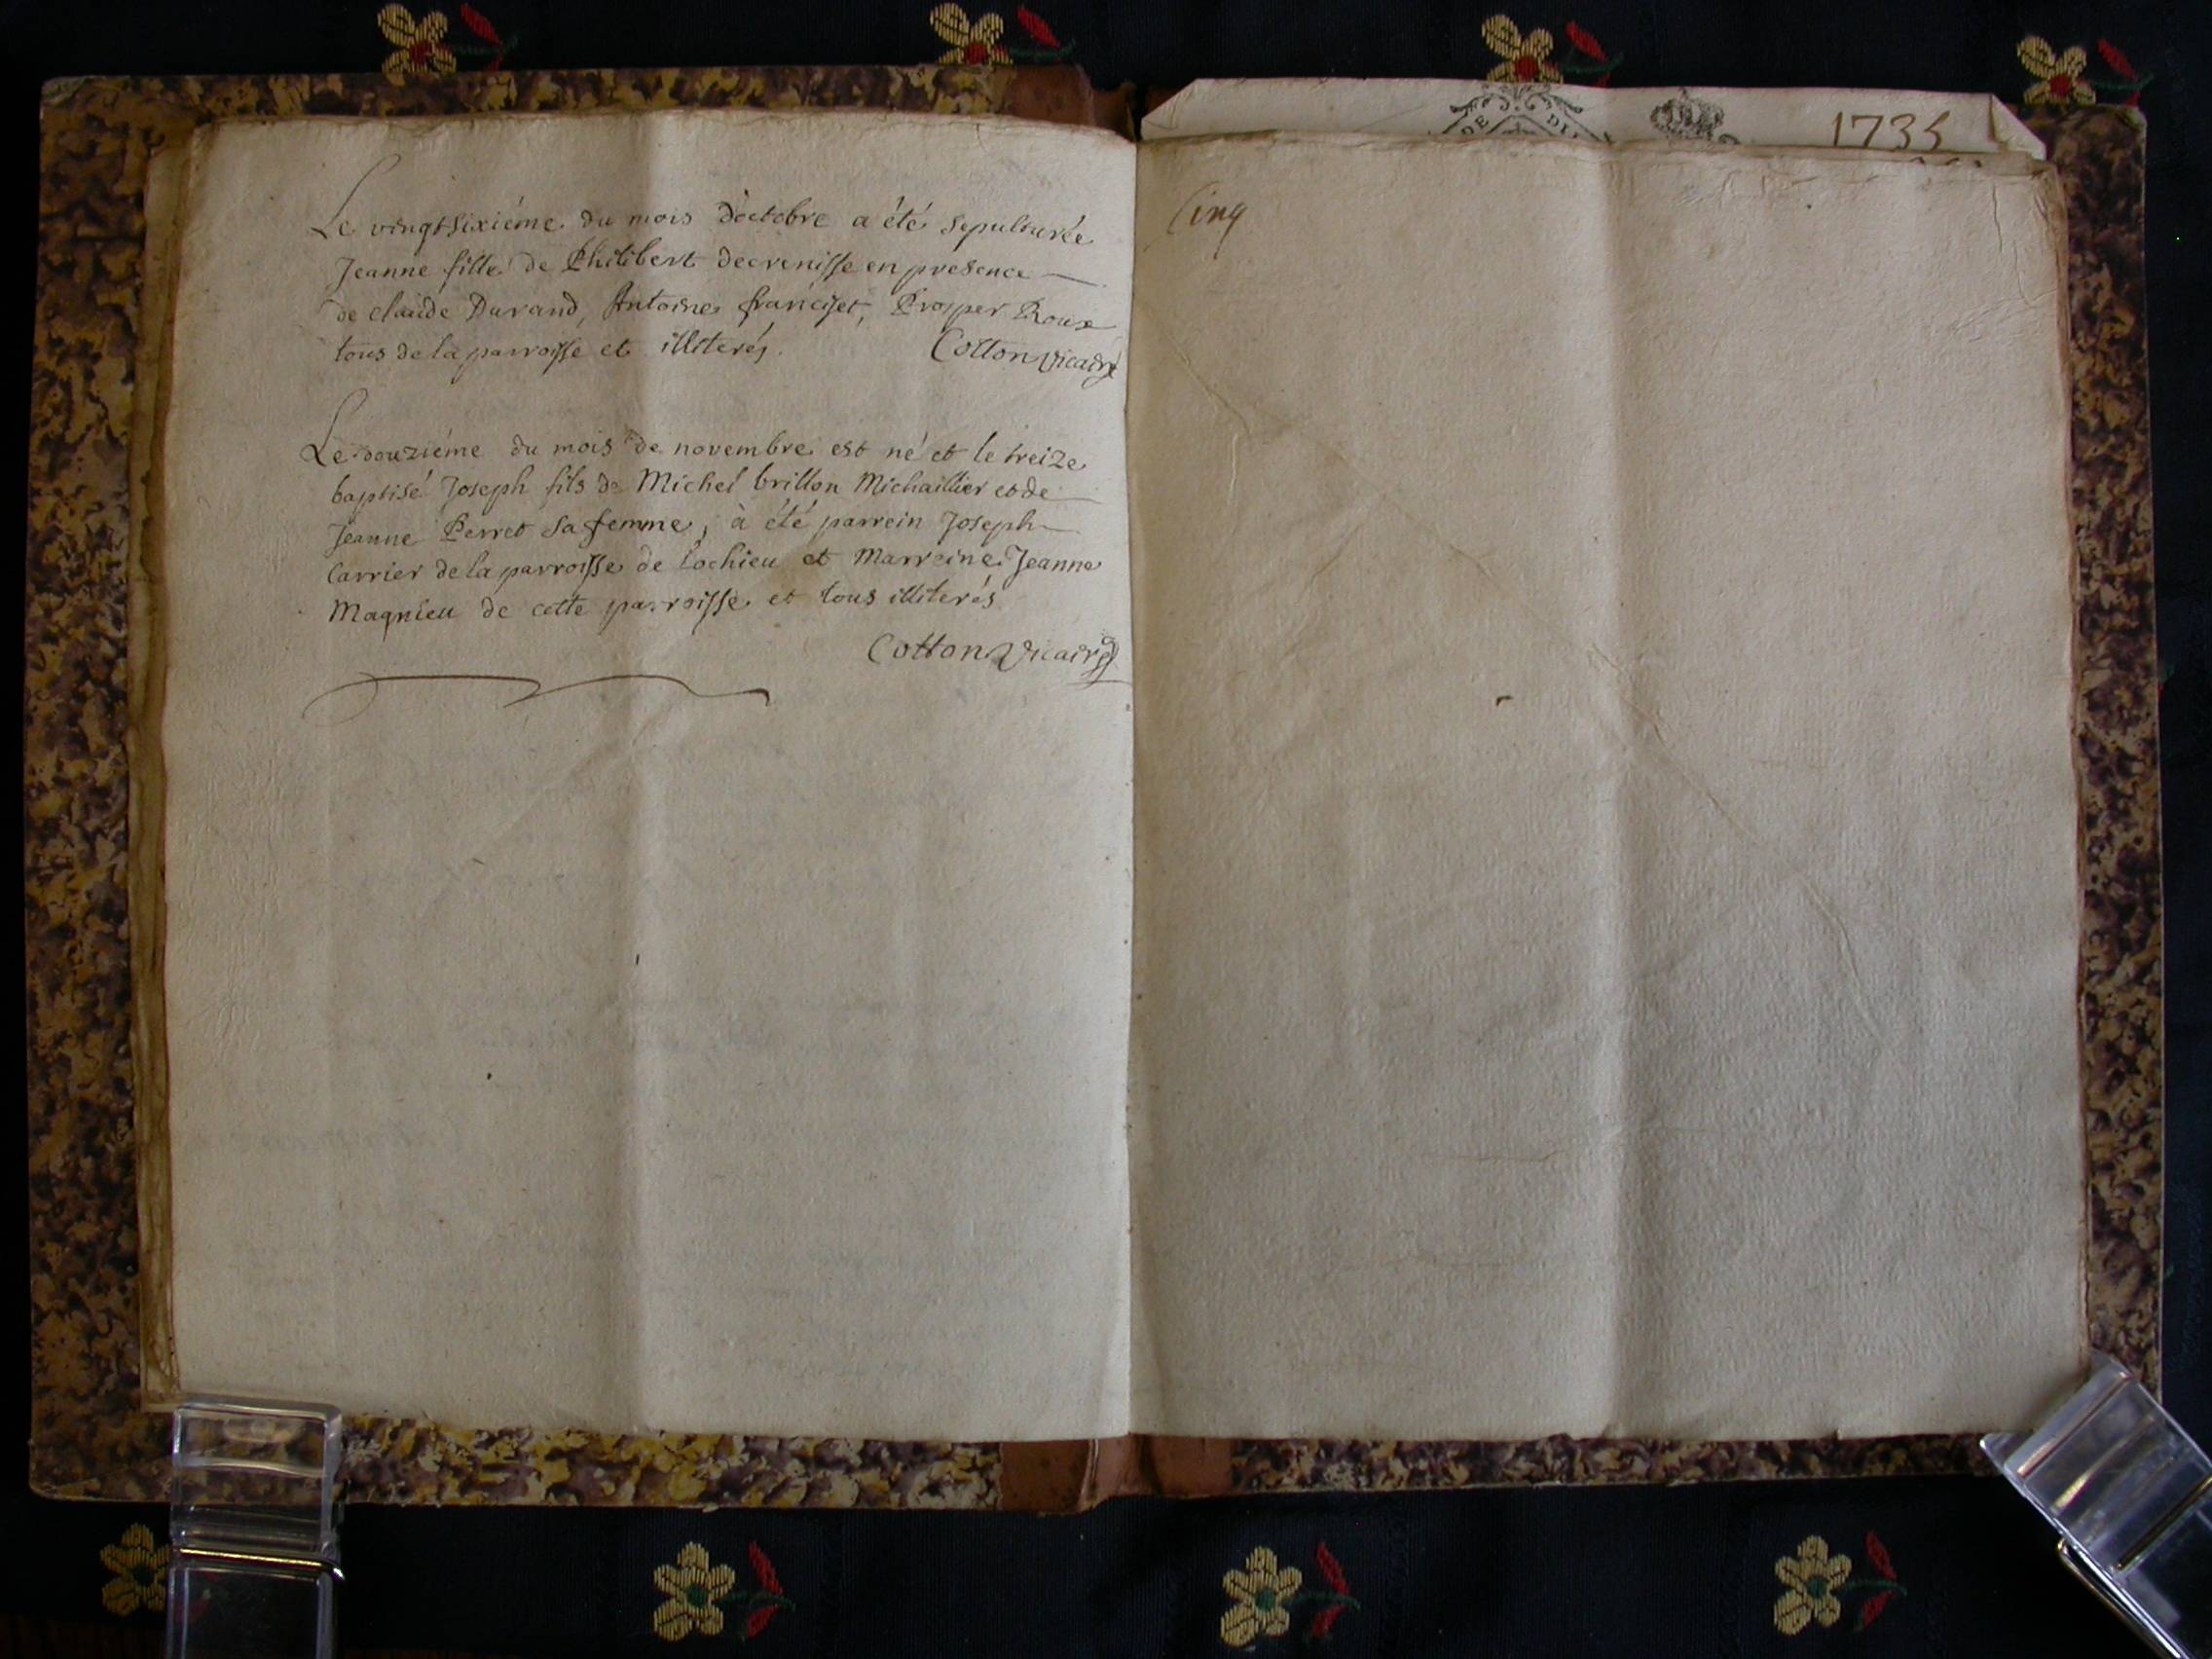 Le vingtsixiéme du mois d'octobre a été sepulturée
Jeanne fille de Philibert decrenisse en presence
de claude Durand, Antoine francijet, Prosper Roux
tous de la parroisse et illiterés.
Cotton vicaire
Le douziéme du mois de novembre est né et le treize
baptisé Joseph fils de Michel brillon Michaillier et de
Jeanne Perret sa femme, à été parrein Joseph
Carrier de la parroisse de Lochieu et Marreine Jeanne
Magnieu de cette parroisse et tous illiterés
Cotton Vicaire
DE DI
1735
Cinq